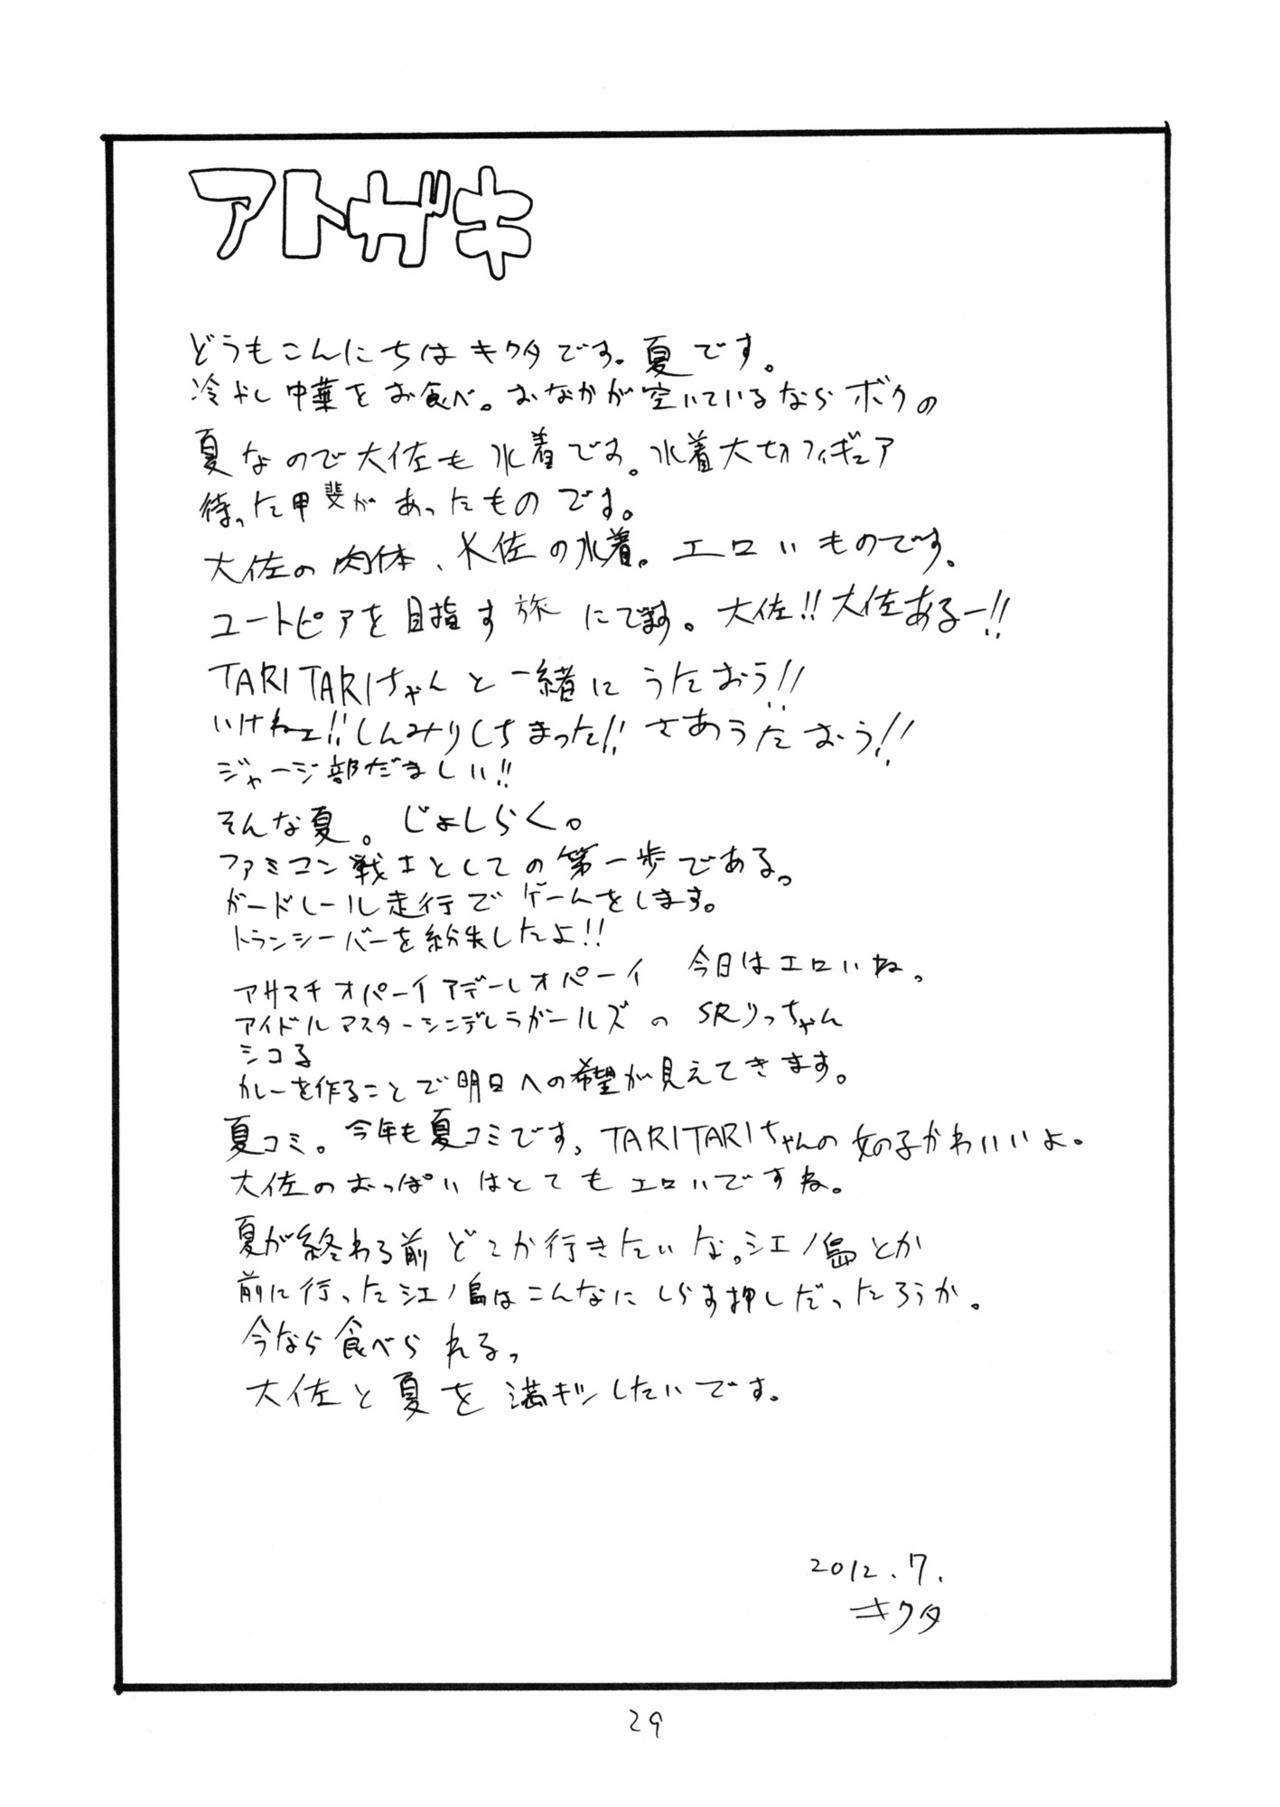 アトガキ
どうもこんにちは キクタです。夏です。
冷やし中華をお食べ。おなかが空いているなら ボクの
夏なので大佐も水着です。水着大佐フィギュア
待った甲斐があったものです。
大佐の肉体、大佐の水着。エロいものです。
ユートピアを目指す旅にでます。大佐!!大佐あるー!!
TARITARIちゃんと一緒にうたおう!!
いけねェ!!しんみりしちまった!! さあうたおう!!
ジャージ部だましい!!
そんな夏。じょしらく。
ファミコン戦士としての第一歩である。
ガードレール走行でゲームをします。
トランシーバーを紛失したよ!!
アサマチオパーイアデーレオパーイ 今日はエロいね。
アイドルマスターシンデレラガールズの SRりっちゃん
シコる
カレーを作ることで明日への希望が見えてきます。
夏コミ。今年も夏コミです。TARITARIちゃんの女の子かわいいよ。
大佐のおっぱいはとてもエロいですね。
夏が終わる前どこか行きたいな。江ノ島とか
前に行った江ノ島はこんなにしらす押しだったろうか。
今なら食べられる。
大佐と夏を満キツしたいです。
2012.7.
キクタ
29